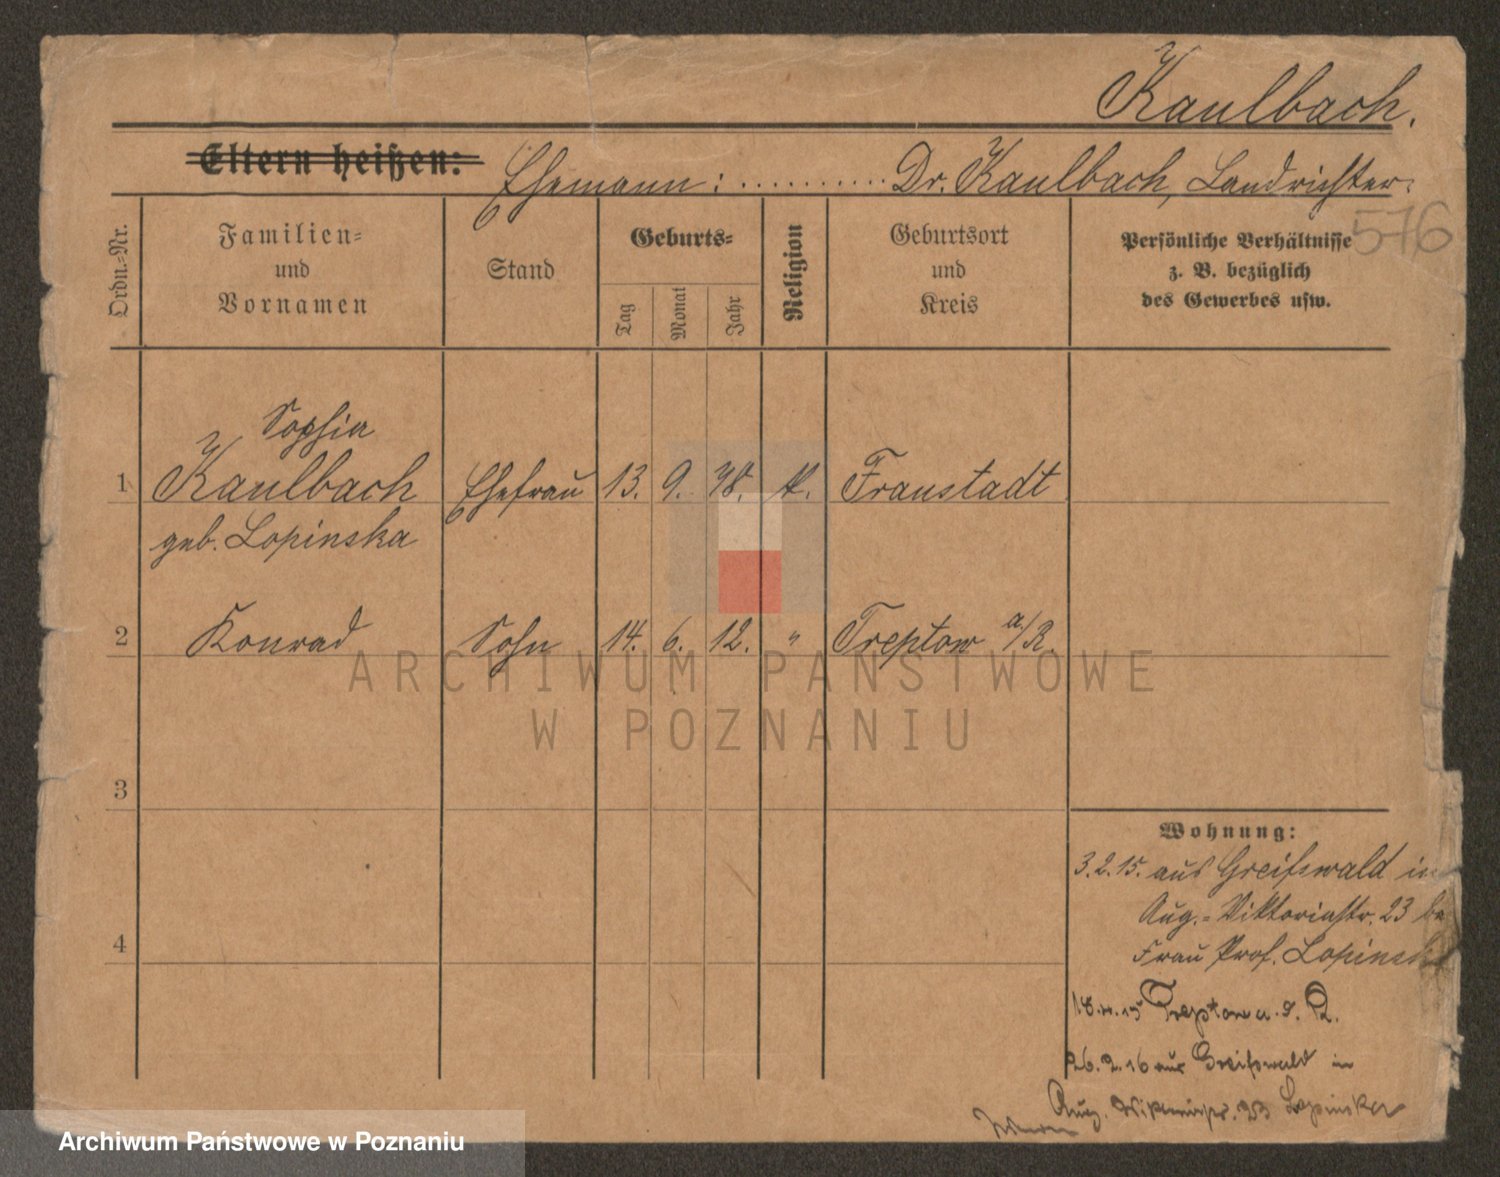 Kaulbach.
Eltern heißen: Ehemann: ........... Dr. Kaulbach, Landrichter.
576
Ordn.=Nr.
Familien=
und
Vornamen
Stand
Geburts=
Tag
Monat
Jahr
Religion
Geburtsort
und
Kreis
Persönliche Verhältnisse
z. B. bezüglich
des Gewerbes usw.
Sophia
1 Kaulbach Ehefrau 13. 9. K. Fraustadt
geb. Lopinska
2 Konrad Sohn 14. 6. 12. " Treptow a/R.
ARCHIWUM PAŃSTWOWE
W POZNANIU
3
Wohnung:
3.2.15. aus Greifswald in
Aug.=Viktoriastr. 23
4
Frau Prof. Lopinska
Treptow a. d. R.
26.2.16 aus Greifswald in
Aug. 23 Lopinska
Archiwum Państwowe w Poznaniu